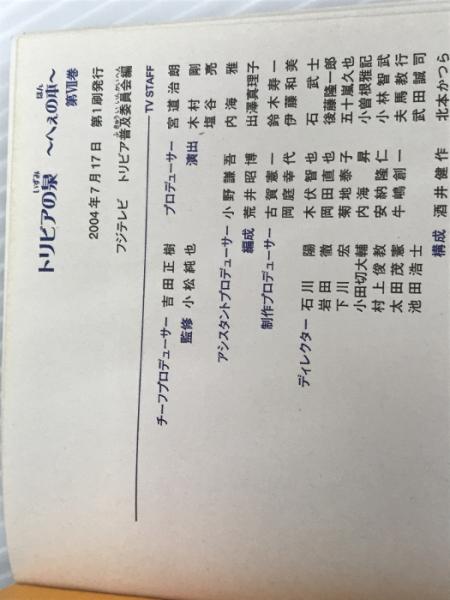 トリビアの泉 〜へぇの本〜
いずみ ほん
第Ⅶ巻
2004年7月17日 第1刷発行
ふきゅういいんかいへん
フジテレビ トリビア普及委員会編
TV STAFF
チーフプロデューサー 吉田正樹 プロデューサー 宮道治朗
監修 小松純也 演出 木村 剛
塩谷 亮
アシスタントプロデューサー 小野謙吾 内海 雅
編成 荒井昭博 出澤真理子
制作プロデューサー 古賀憲一 鈴木寿一
岡庭幸代 伊藤和美
ディレクター 石川 陽 木伏智也 石 武士
岩田 徹 岡田直也 後藤隆一郎
下川 宏 菊地泰子 五十嵐久也
小田切大輔 内海 昇 小曽根雅記
村上俊教 安納隆仁 小林智武
太田茂憲 牛嶋創一 夫馬教行
池田浩士 武田誠司
構成 酒井健作 北本かつら